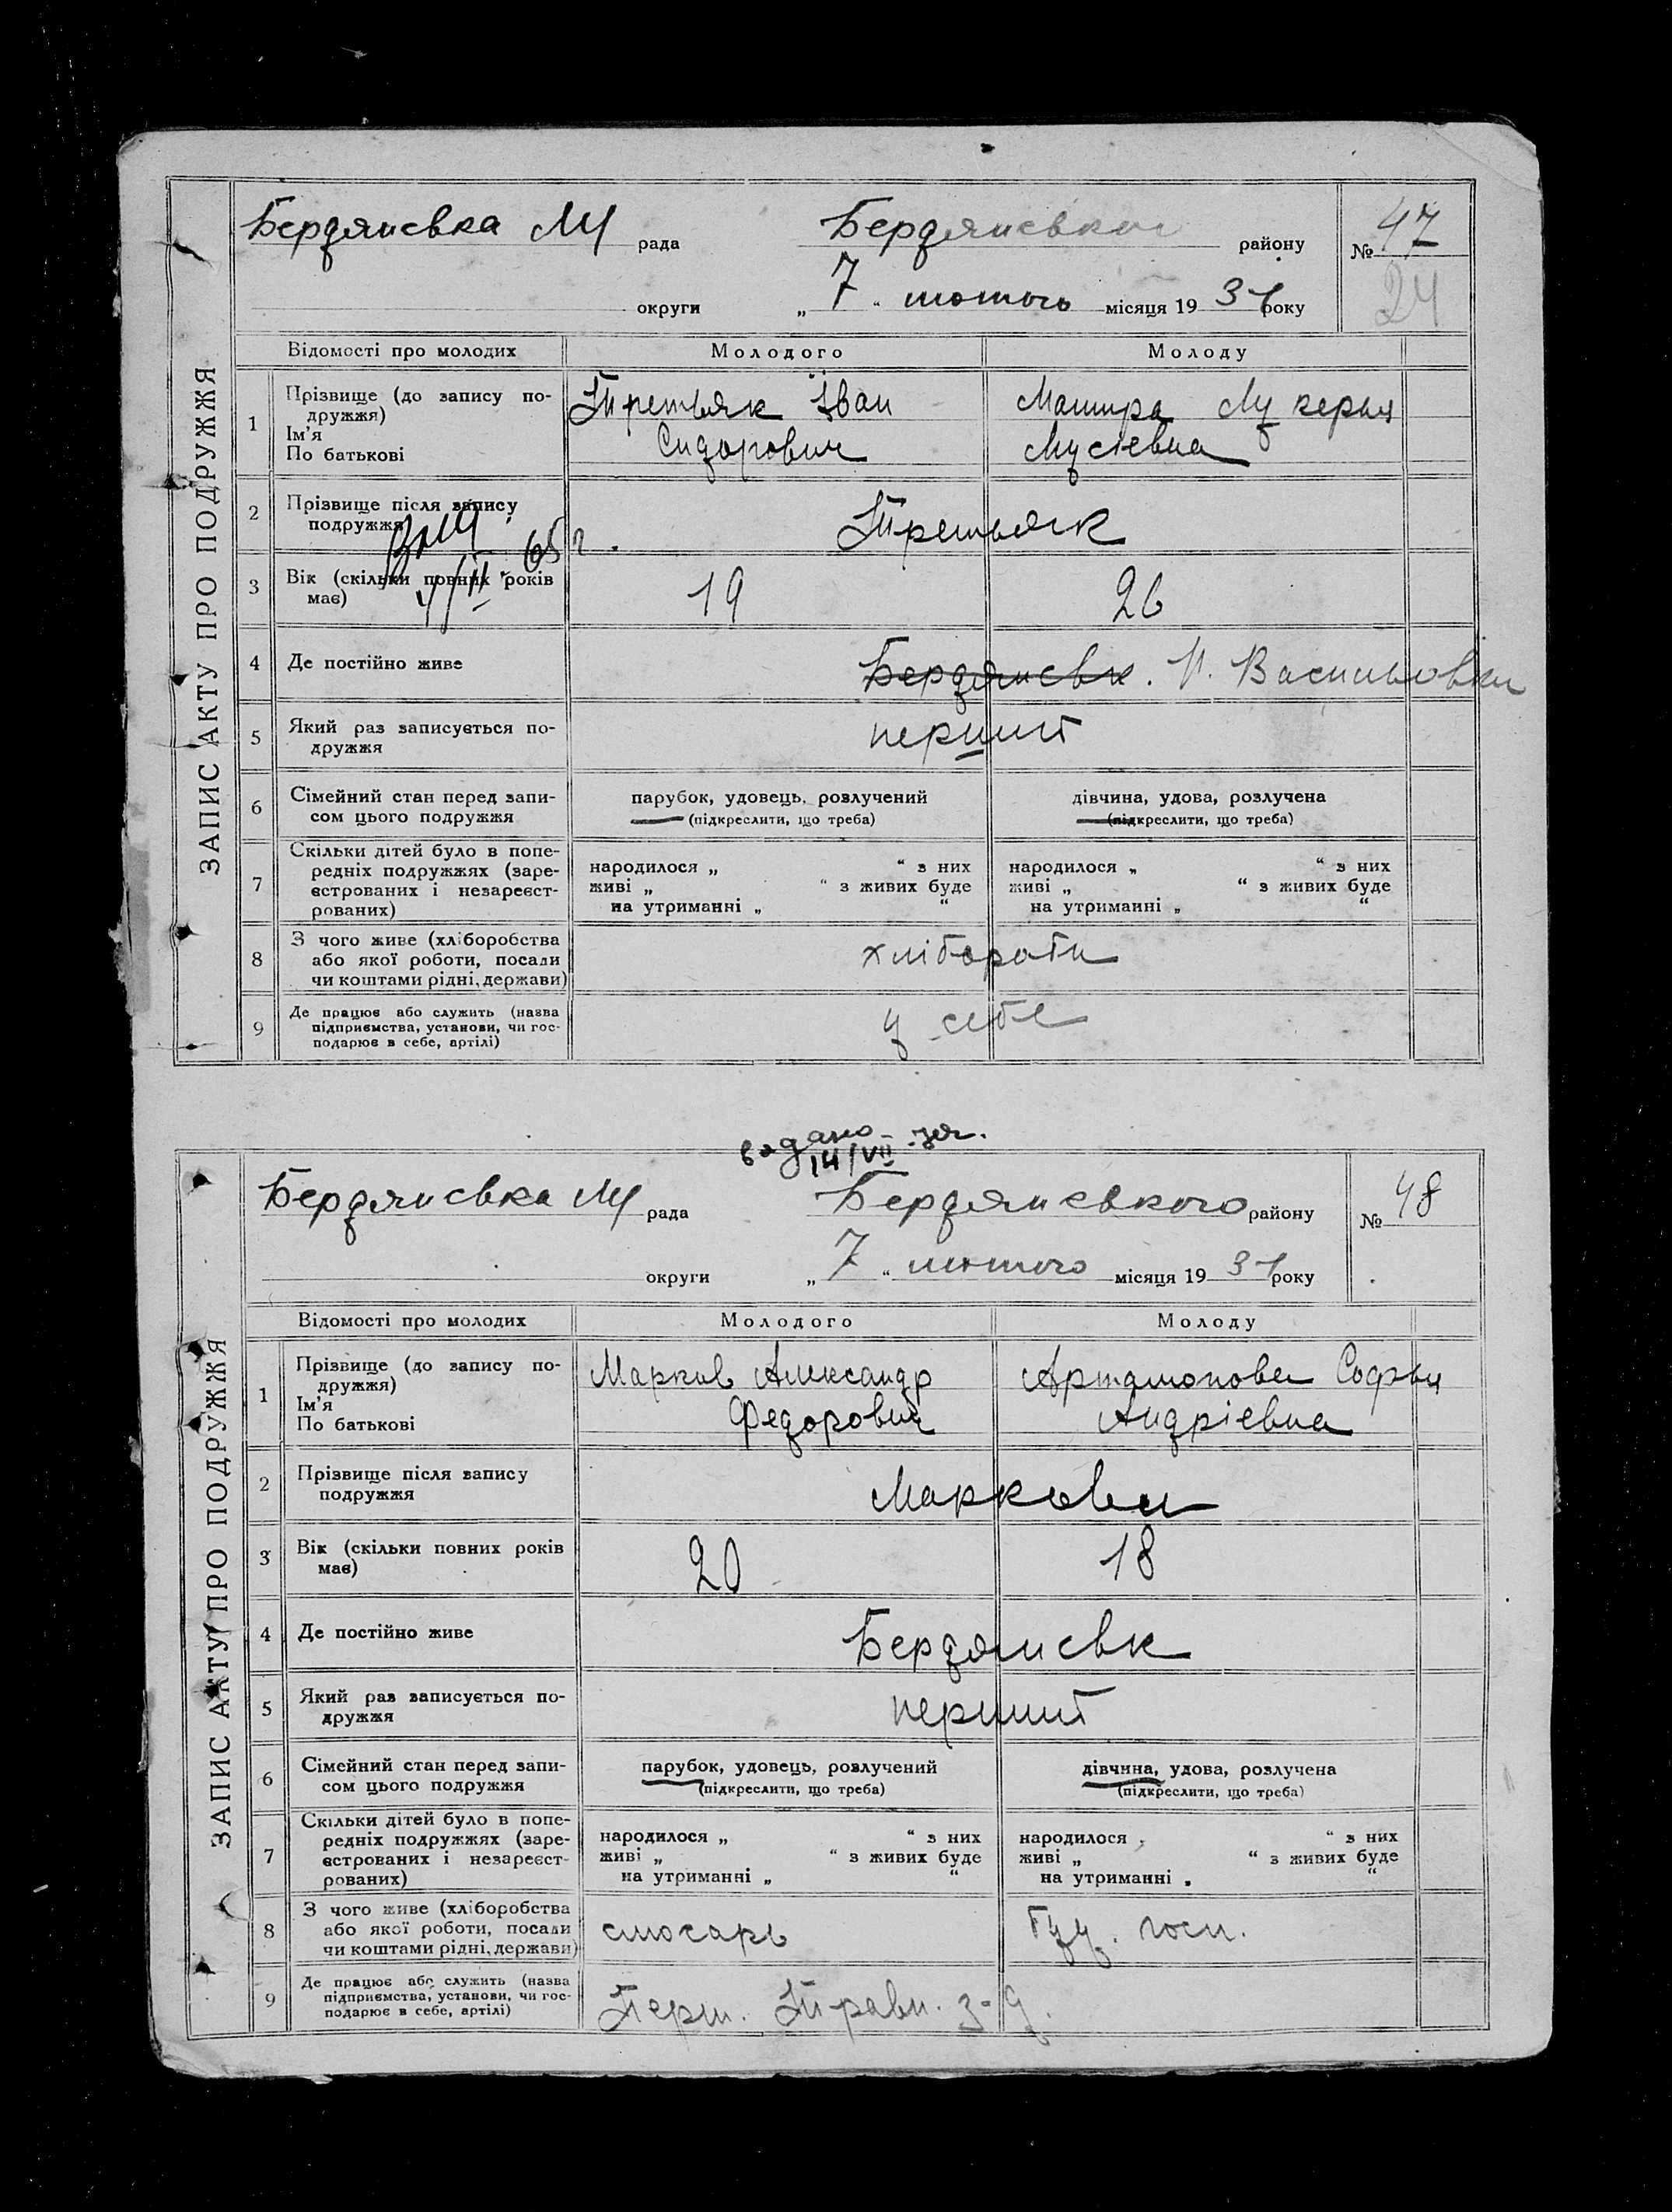 ЗАПИС АКТУ ПРО ПОДРУЖЖЯ
Бердянська М рада Бердянськог району № 47
24
округи „ 7 “ лютого місяця 19 31 року
Відомості про молодих Молодого Молоду
1 Прізвище (до запису по-
дружжя)
Ім'я
По батькові
Третьяк Іван
Сидорович
Мацира Лукерья
Мусіевна
2 Прізвище після запису
подружжя
Третьяк
65 г.
3 Вік (скільки повних років
має)
19 26
4 Де постійно живе
Бердянськ. Н. Васильовка
5 Який раз записується по-
дружжя
перший
6 Сімейний стан перед запи-
сом цього подружжя
парубок, удовець, розлучений
(підкреслити, що треба)
дівчина, удова, розлучена
(підкреслити, що треба)
7 Скільки дітей було в попе-
редніх подружжях (заре-
єстрованих і незареєст-
рованих)
народилося „ “ з них
живі „ “ з живих буде
на утриманні „ “
народилося „ “ з них
живі „ “ з живих буде
на утриманні „ “
8 З чого живе (хліборобства
або якої роботи, посади
чи коштами рідні, держави)
хлібороби
9 Де працює або служить (назва
підприємства, установи, чи гос-
подарює в себе, артілі)
у себе
14/VII
ЗАПИС АКТУ ПРО ПОДРУЖЖЯ
Бердянська М рада Бердянського району № 48
округи „ 7 “ лютого місяця 19 31 року
Відомості про молодих Молодого Молоду
1 Прізвище (до запису по-
дружжя)
Ім'я
По батькові
Марков Александр
Федорович
Артамонова Софья
Андріевна
2 Прізвище після запису
подружжя
Маркови
3 Вік (скільки повних років
має)
20 18
4 Де постійно живе
Бердянськ
5 Який раз записується по-
дружжя
перший
6 Сімейний стан перед запи-
сом цього подружжя
парубок, удовець, розлучений
(підкреслити, що треба)
дівчина, удова, розлучена
(підкреслити, що треба)
7 Скільки дітей було в попе-
редніх подружжях (заре-
єстрованих і незареєст-
рованих)
народилося „ “ з них
живі „ “ з живих буде
на утриманні „ “
народилося „ “ з них
живі „ “ з живих буде
на утриманні „ “
8 З чого живе (хліборобства
або якої роботи, посади
чи коштами рідні, держави)
слюсарь
госп.
9 Де працює або служить (назва
підприємства, установи, чи гос-
подарює в себе, артілі)
Перш. Травн. з-д.